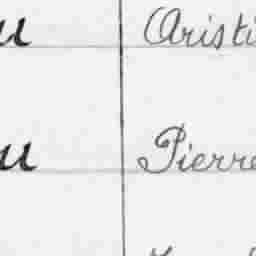 u Aristi
u Pierre